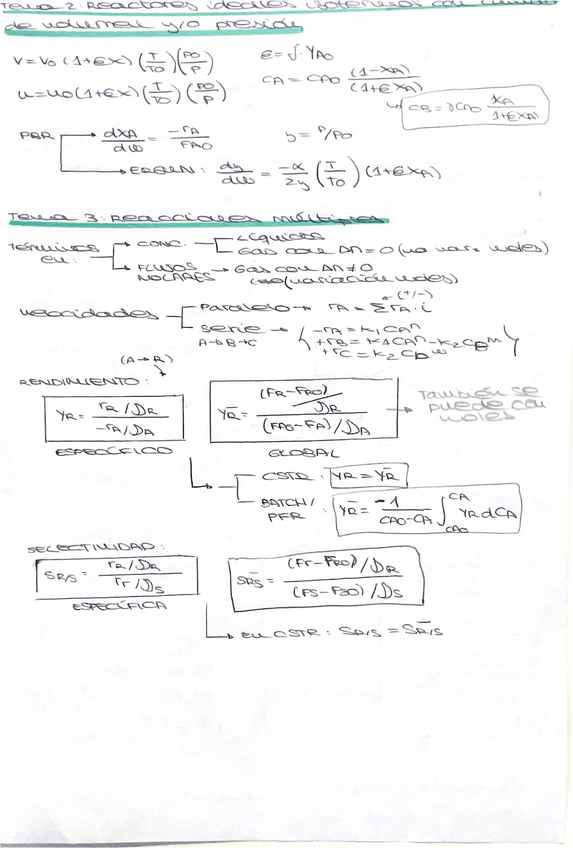 Tema 2: Reactores ideales isotermos con cambio
de volumen y/o presión
V = V0 (1+εX) (T/T0) (P0/P)
ε = δ · YA0
u = u0 (1+εX) (T/T0) (P0/P)
CA = CA0 (1-XA)/(1+εXA)
CB = CA0 XA/(1+εXA)
PBR → dXA/dW = -rA/FA0
y = P/P0
→ ERGUN: dy/dW = -α/2y (T/T0) (1+εXA)
Tema 3: Reacciones múltiples
Términos en: → CONC. LÍQUIDOS
Gas con Δn = 0 (no varía moles)
→ FLUJOS MOLARES → Gas con Δn ≠ 0
(variación moles)
Velocidades Paralelo → rA = Σ rA,i (+/-)
Serie → -rA = k1 CA^n
A→B→C +rB = k1 CA^n - k2 CB^m
+rC = k2 CB^m
(A→R)
RENDIMIENTO:
YR = rR/νR / -rA/νA
ȲR = (FR-FR0)/νR / (FA0-FA)/νA
→ También se puede con moles
ESPECÍFICO
GLOBAL
CSTR: YR = ȲR
BATCH/PFR: ȲR = -1/(CA0-CA) ∫CA0^CA YR dCA
SELECTIVIDAD:
SR/S = rR/νR / rr/νS
SR̄S = (Fr-FR0)/νR / (FS-FS0)/νS
ESPECÍFICA
→ EN CSTR: SR/S = S̄R/S